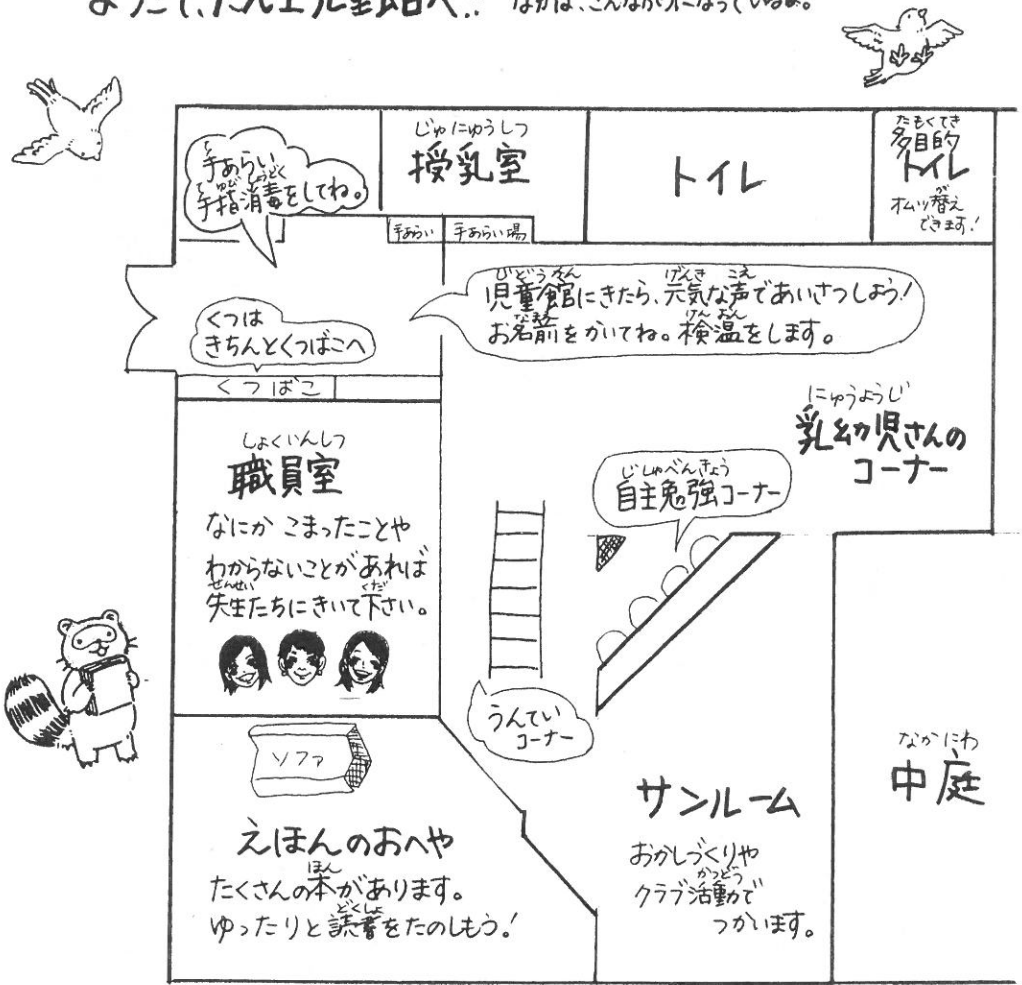 なかは、こんなかんじになっているよ。
手あらい
手指消毒をしてね。
じゅにゅうしつ
授乳室
トイレ
たもくてき
多目的
トイレ
オムツ替え
できます!
手あらい
手あらい場
児童館にきたら、元気な声であいさつしよう!
お名前をかいてね。検温をします。
くつは
きちんとくつばこへ
くつばこ
にゅうようじ
乳幼児さんの
コーナー
しょくいんしつ
職員室
なにか こまったことや
わからないことがあれば
先生たちにきいて下さい。
じしゅべんきょう
自主勉強コーナー
うんてい
コーナー
ソファ
えほんのおへや
たくさんの本があります。
ゆったりと読書をたのしもう!
サンルーム
おかしづくりや
クラブ活動で
つかいます。
なかにわ
中庭